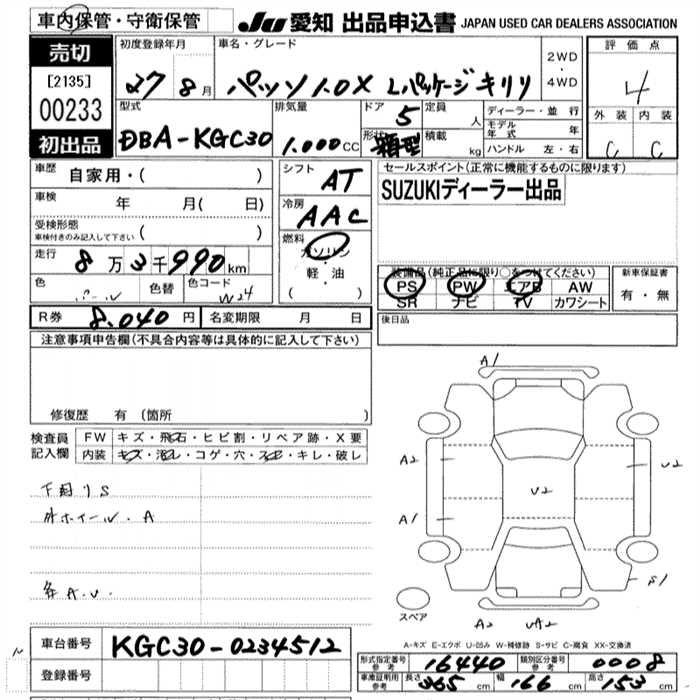 車内保管・守衛保管 JU 愛知 出品申込書 JAPAN USED CAR DEALERS ASSOCIATION
売切 初度登録年月 車名・グレード 2WD・4WD 評価点
[2135] 27 8月 パッソ 1.0X Lパッケージキリリ 4
00233 型式 排気量 ドア 5 定員 人 ディーラー・並行 外装 内装
初出品 DBA-KGC30 1.000cc 形状 箱型 積載 kg モデル年式 年 C C
ハンドル 左・右
車歴 自家用・( ) シフト AT セールスポイント(正常に機能するものに限ります)
車検 年 月( 日) 冷房 AAC SUZUKIディーラー出品
受検形態 車検付きのみ記入して下さい ( )
走行 8万3千990km 燃料 ガソリン・軽油 ( ) 装備品(純正品に限り○をつけてください) 新車保証書
色 色替 色コード W24 PS PW エアB AW 有・無
SR ナビ TV カワシート
R券 8.040円 名変期限 月 日 後日品
注意事項申告欄(不具合内容等は具体的に記入して下さい)
修復歴 有(箇所 )
検査員記入欄 FW キズ・飛石・ヒビ割・リペア跡・X要
内装 キズ・汚レ・コゲ・穴・スレ・キレ・破レ
下廻りS
外ホイール・A
A1
A2 U2
U2
A1
S1
スペア A2 UA2
A-キズ E-エクボ U-凹み W-補修跡 S-サビ C-腐食 XX-交換済
車台番号 KGC30-0234512
形式指定番号 参考 16440 類別区分番号 参考 0008
登録番号 車庫証明用 参考 長さ 365cm 幅 166cm 高さ 153cm